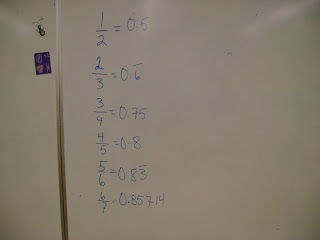 1/2 = 0.5
2/3 = 0.6̅
3/4 = 0.75
4/5 = 0.8
5/6 = 0.83̅
6/7 = 0.85714